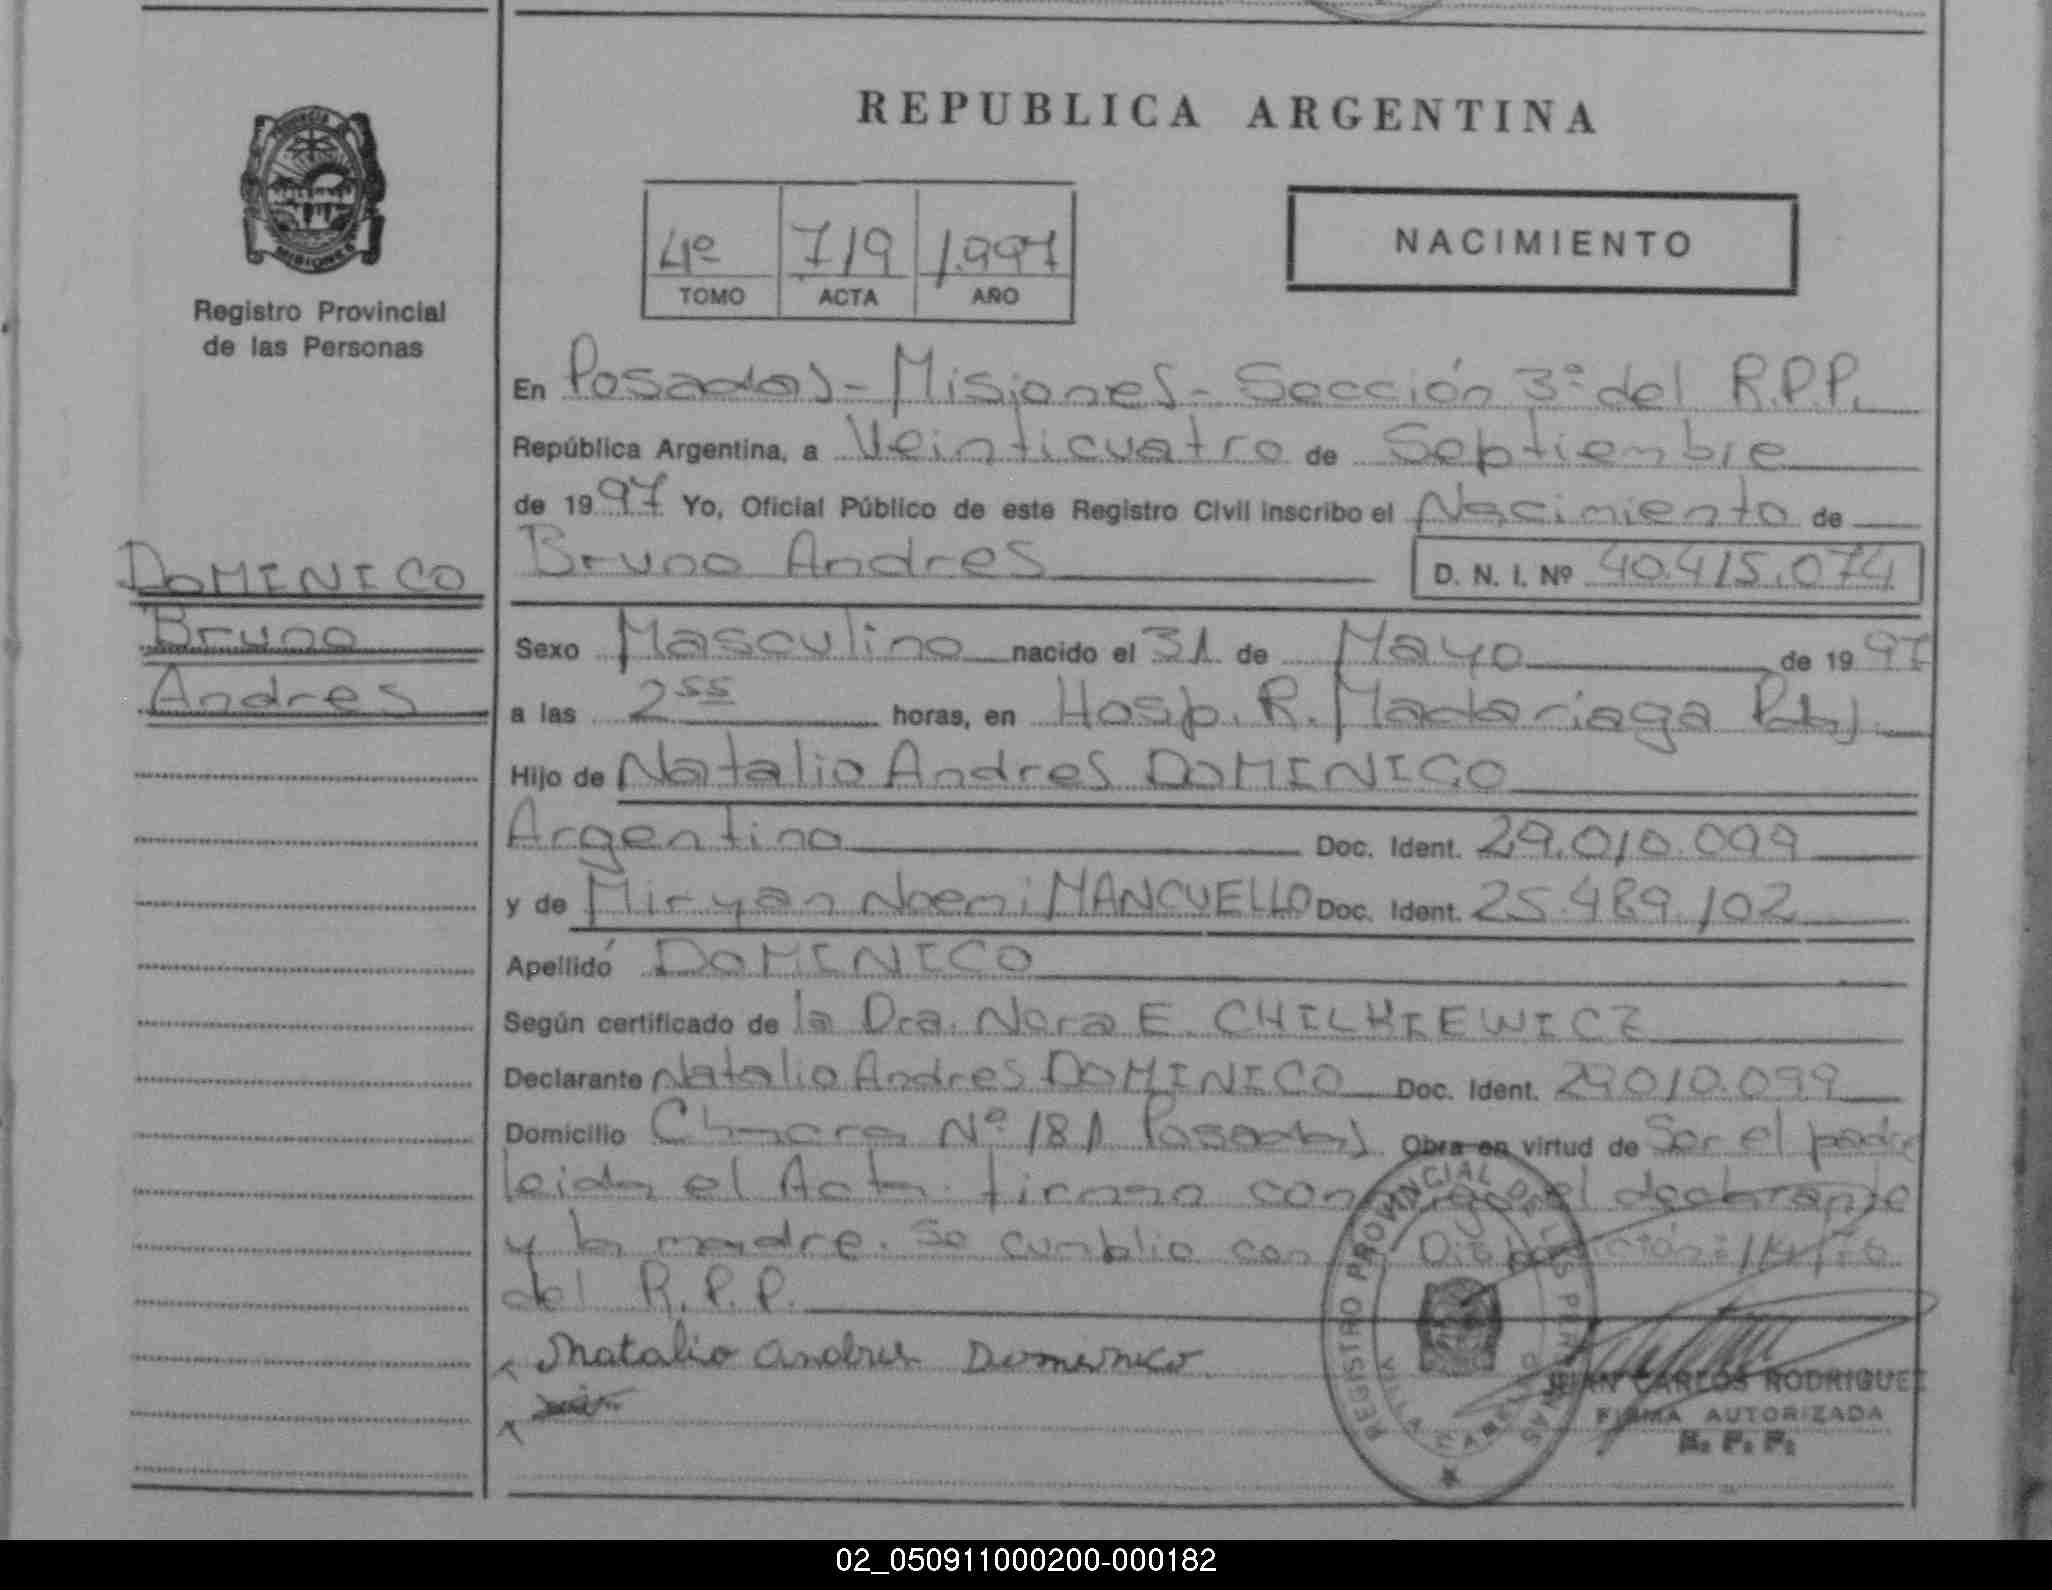 REPUBLICA ARGENTINA
PROVINCIA DE
MISIONES
Registro Provincial
de las Personas
4º 719 1.997
TOMO ACTA AÑO
NACIMIENTO
En Posadas - Misiones - Sección 3ª del R.P.P.
República Argentina, a Veinticuatro de Septiembre
de 1997 Yo, Oficial Público de este Registro Civil inscribo el Nacimiento de
Bruno Andres D. N. I. Nº 40.415.074
DOMINICO
Bruno
Andres
Sexo Masculino nacido el 31 de Mayo de 1997
a las 2 55 horas, en Hosp. R. Madariaga
Hijo de Natalio Andres DOMINICO
Argentino Doc. Ident. 29.010.099
y de Miryan Noemi MANCUELLO Doc. Ident. 25.489.102
Apellido DOMINICO
Según certificado de la Dra. Nora E. CHILKIEWICZ
Declarante Natalio Andres DOMINICO Doc. Ident. 29.010.099
Domicilio Chacra Nº 181 Posadas Obra en virtud de Ser el padre
leida el Acta firman conmigo el declarante
y la madre. Se cumplio con Disposición:
del R.P.P.
Natalio Andres Dominico
REGISTRO PROVINCIAL DE LAS PERSONAS
VILLA CABELLO
JUAN CARLOS RODRIGUEZ
FIRMA AUTORIZADA
R. P. P.
02_050911000200-000182